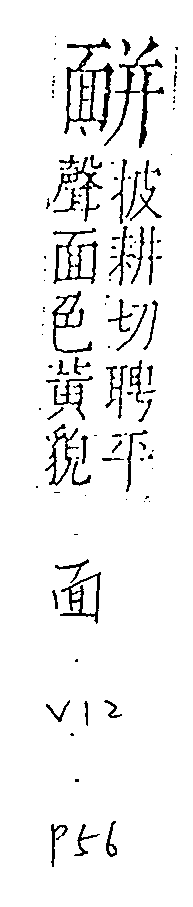 披耕切聘平
聲面色黄貌
面
V12
P56